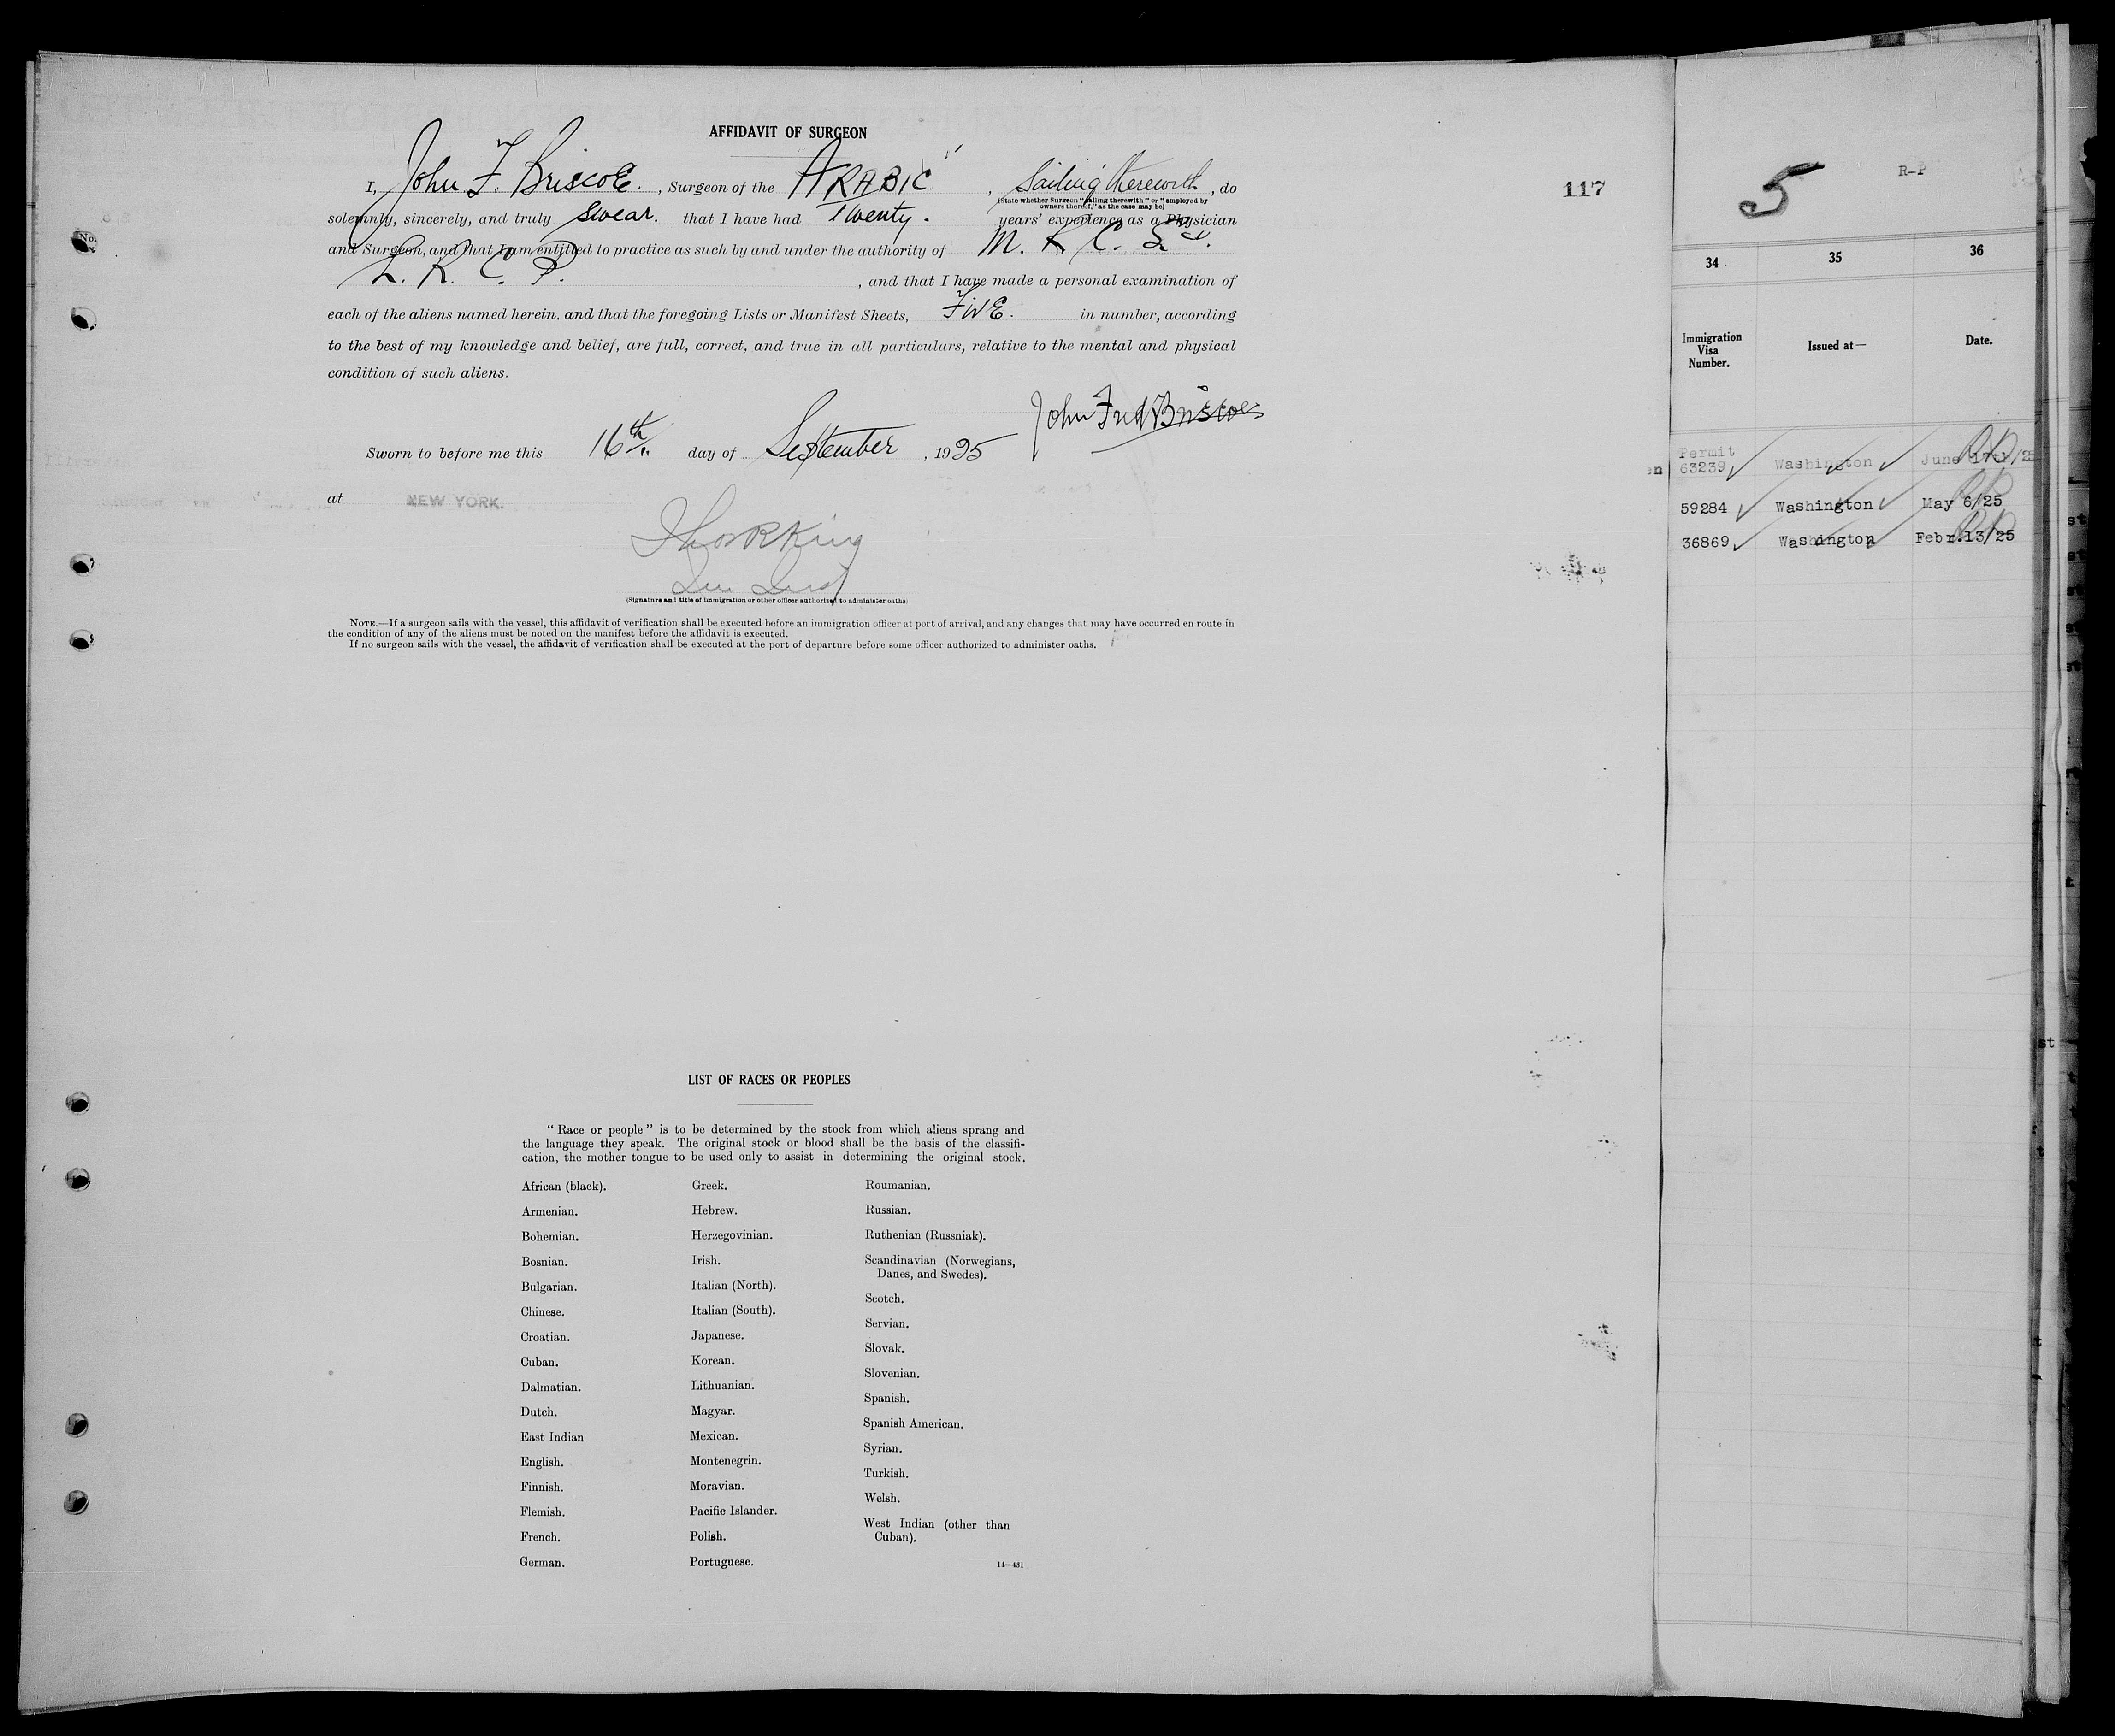 AFFIDAVIT OF SURGEON
I, John F. Briscoe. , Surgeon of the ARABIC , Sailing therewith , do
(State whether Surgeon "sailing therewith" or "employed by
owners thereof," as the case may be)
solemnly, sincerely, and truly swear. that I have had Twenty. years' experience as a Physician
and Surgeon, and that I am entitled to practice as such by and under the authority of M. R. C. S.
L. R. C. P. , and that I have made a personal examination of
each of the aliens named herein, and that the foregoing Lists or Manifest Sheets, FIVE. in number, according
to the best of my knowledge and belief, are full, correct, and true in all particulars, relative to the mental and physical
condition of such aliens.
John Fred Briscoe
Sworn to before me this 16th day of September , 1925
at NEW YORK.
King
(Signature and title of immigration or other officer authorized to administer oaths)
NOTE.—If a surgeon sails with the vessel, this affidavit of verification shall be executed before an immigration officer at port of arrival, and any changes that may have occurred en route in
the condition of any of the aliens must be noted on the manifest before the affidavit is executed.
If no surgeon sails with the vessel, the affidavit of verification shall be executed at the port of departure before some officer authorized to administer oaths.
LIST OF RACES OR PEOPLES
"Race or people" is to be determined by the stock from which aliens sprang and
the language they speak. The original stock or blood shall be the basis of the classifi-
cation, the mother tongue to be used only to assist in determining the original stock.
African (black).
Armenian.
Bohemian.
Bosnian.
Bulgarian.
Chinese.
Croatian.
Cuban.
Dalmatian.
Dutch.
East Indian
English.
Finnish.
Flemish.
French.
German.
Greek.
Hebrew.
Herzegovinian.
Irish.
Italian (North).
Italian (South).
Japanese.
Korean.
Lithuanian.
Magyar.
Mexican.
Montenegrin.
Moravian.
Pacific Islander.
Polish.
Portuguese.
Roumanian.
Russian.
Ruthenian (Russniak).
Scandinavian (Norwegians,
Danes, and Swedes).
Scotch.
Servian.
Slovak.
Slovenian.
Spanish.
Spanish American.
Syrian.
Turkish.
Welsh.
West Indian (other than
Cuban).
14—431
117
5
R-P
34 35 36
Immigration
Visa
Number.
Issued at—
Date.
Permit
63239 Washington June 17th/25
59284 Washington May 6/25
36869 Washington Febr.13/25